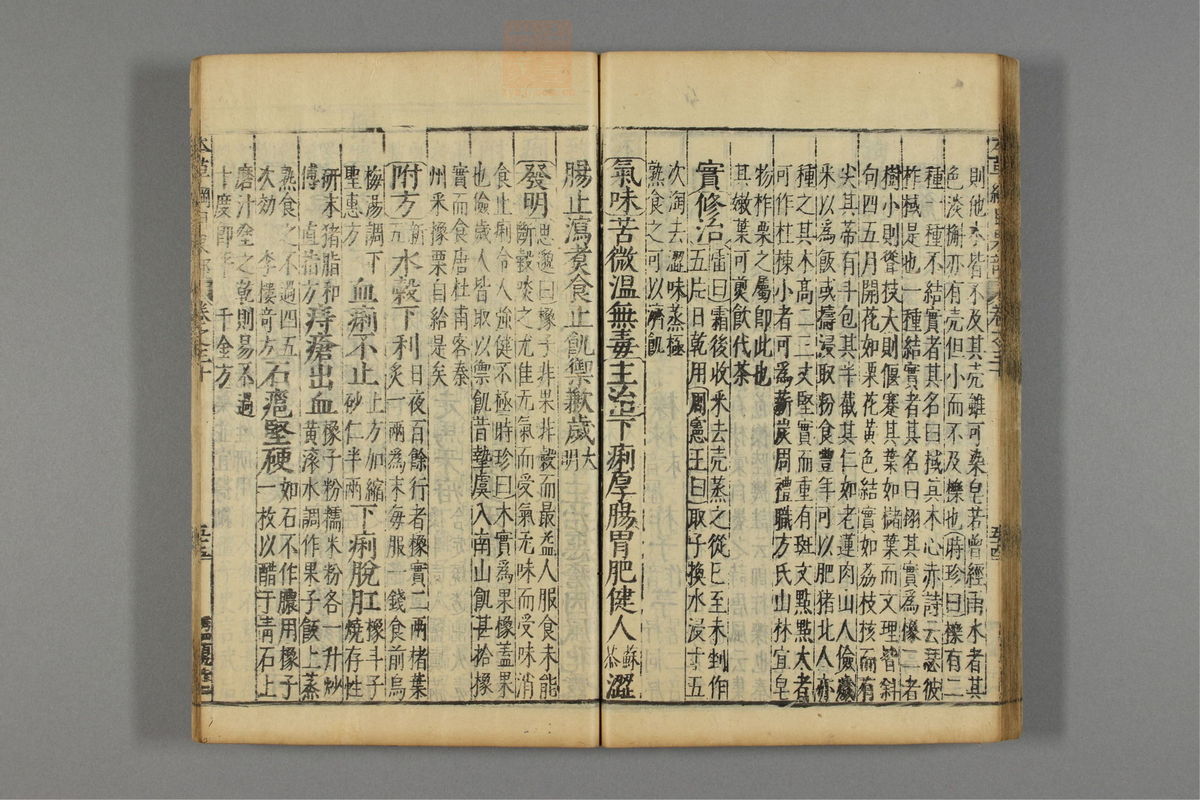 則他木皆不及其壳雖可染皂若曾經雨水者其
色淡槲亦有壳但小而不及櫟也時珍曰櫟有二
種一種不結實者其名曰棫其木心赤詩云瑟彼
柞棫是也一種結實者其名曰栩其實為橡二者
樹小則聳枝大則偃蹇其葉如櫧葉而文理皆斜
句四五月開花如栗花黃色結實如荔枝核而有
尖其蒂有斗包其半截其仁如老蓮肉山人儉歲
采以為飯或擣浸取粉食豐年可以肥猪北人亦
種之其木高二三丈堅實而重有斑文點點大者
可作柱棟小者可為薪炭周禮職方氏山林宜皂
物柞栗之屬即此也
其嫩葉可煎飲代茶
實修治雷曰霜後收采去壳蒸之從巳至未剉作
五片日乾用周憲王曰取子換水浸十五
次淘去澀味蒸極
熟食之可以濟飢
氣味苦微溫無毒主治下痢厚腸胃肥健人蘇恭澀
腸止瀉煑食止飢禦歉歲大明
發明思邈曰橡子非果非穀而最益人服食未能
斷穀啖之尤佳无氣而受氣无味而受味消
食止痢令人強健不極時珍曰木實為果橡蓋果
也儉歲人皆取以禦飢昔摯虞入南山飢甚拾橡
實而食唐杜甫客秦
州采橡栗自給是矣
附方新五水穀下利日夜百餘行者橡實二兩楮葉
炙一兩為末每服一錢食前烏
梅湯調下血痢不止上方加縮下痢脫肛橡斗子
聖惠方砂仁半兩燒存性
研末猪脂和橡子粉糯米粉各一升炒
傅直指方痔瘡出血黃滾水調作果子飯上蒸
熟食之不過四五石瘡堅硬如石不作膿用橡子
次効李樓奇方一枚以醋于青石上
磨汁塗之乾則易不過
十度即平千金方